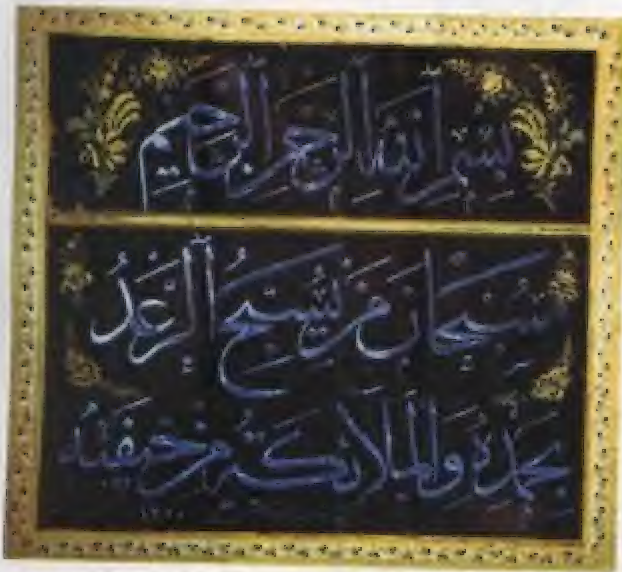 بسم الله الرحمن الرحيم
سبحان من يسبح الرعد
بحمده والملائكة من خيفته